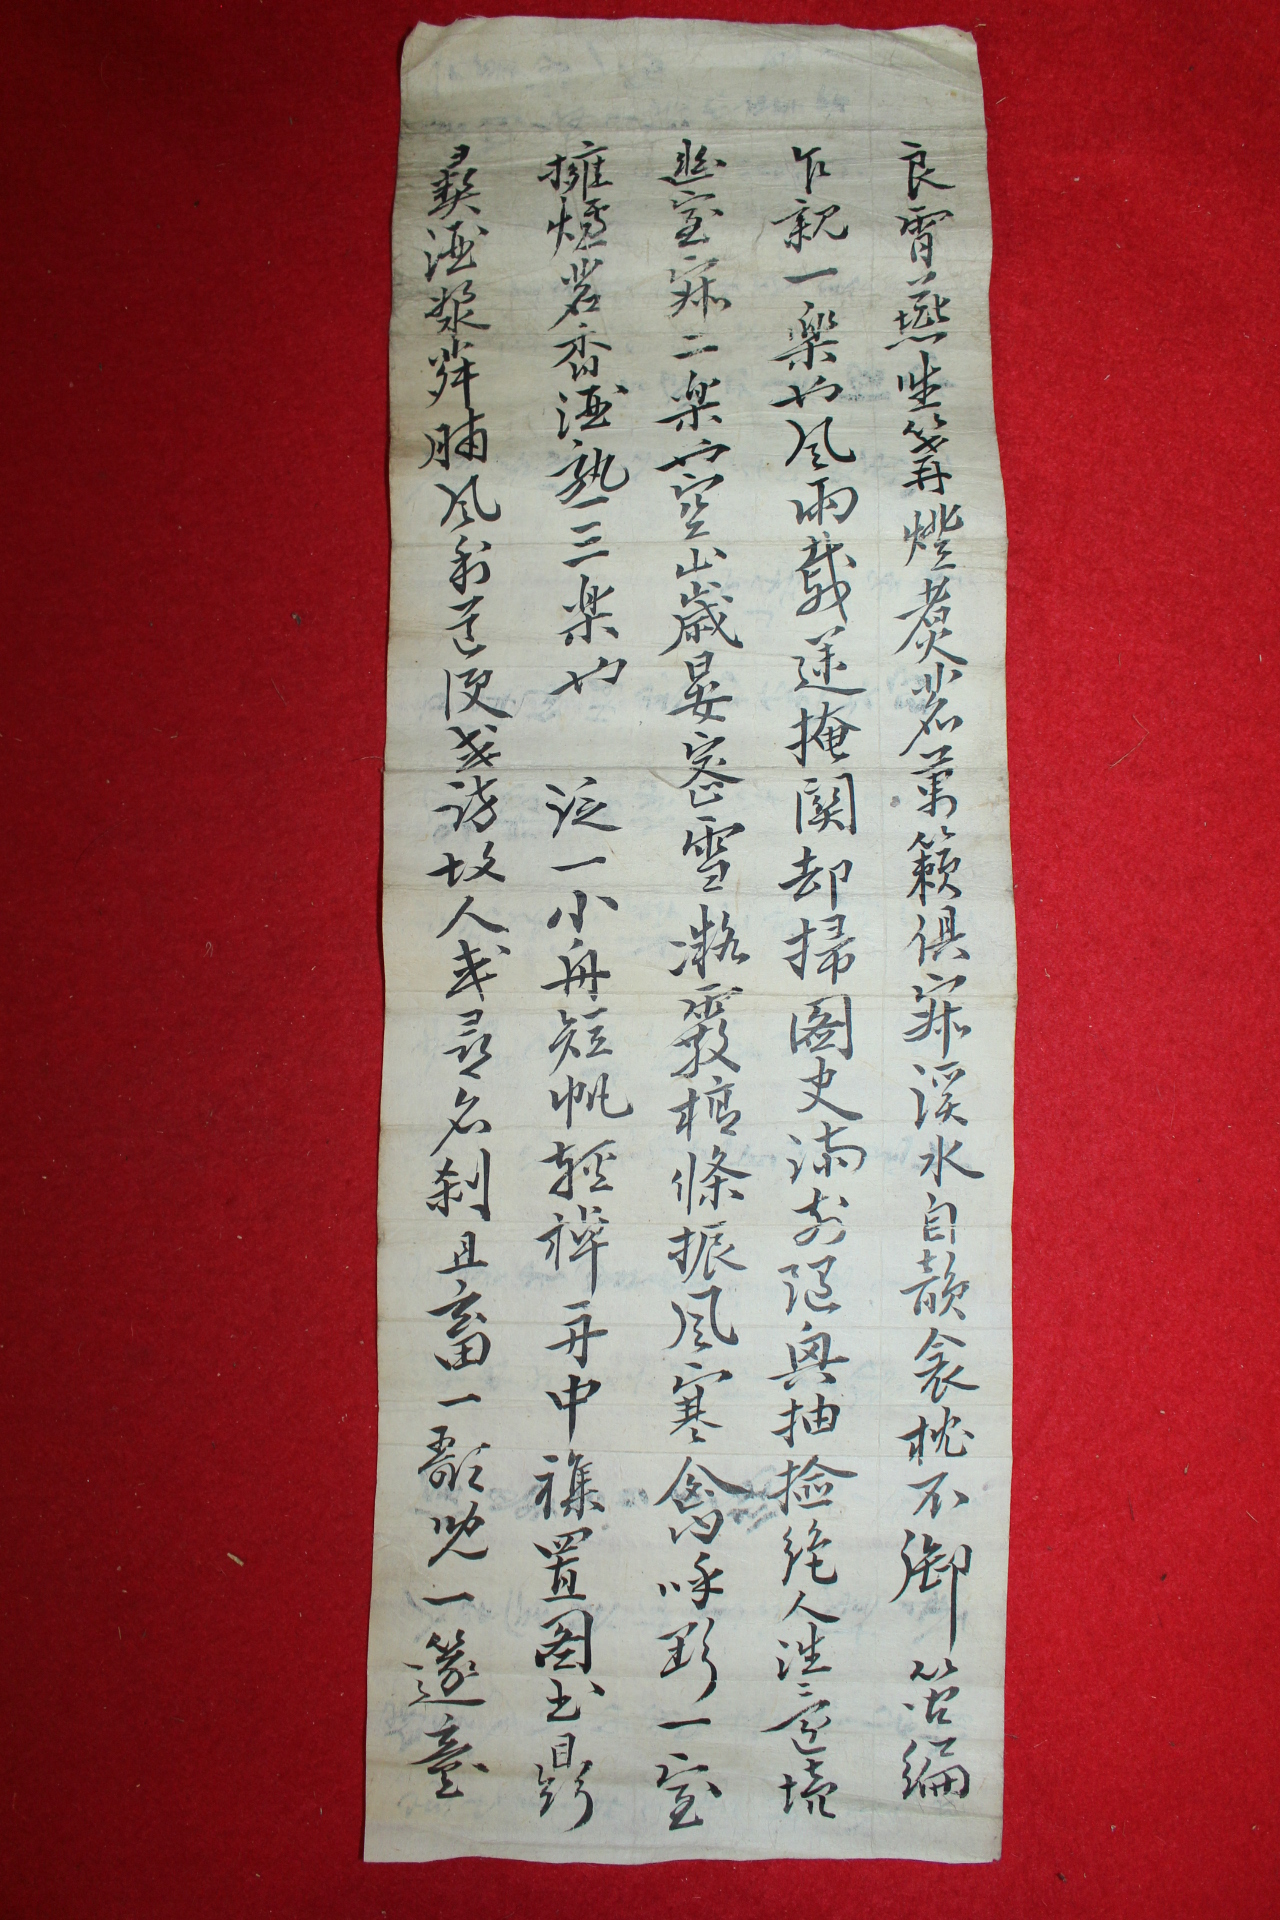 良霄燕坐篝燈煮茗萬籟俱寂溪水自韻衾枕不御笘編
乍親一樂也風雨載途掩関却掃圖史滿前隨興抽撿絶人往還境
幽室寂二楽也空山歲晏密雪凝霰槁條振風寒禽呼野一室
擁爐茗香酒熟三楽也 泛一小舟短帆輕棹舟中襍置圖书鼎
彛酒漿荈脯風利道便或訪故人或尋名刹且畜一歌兒一邃童